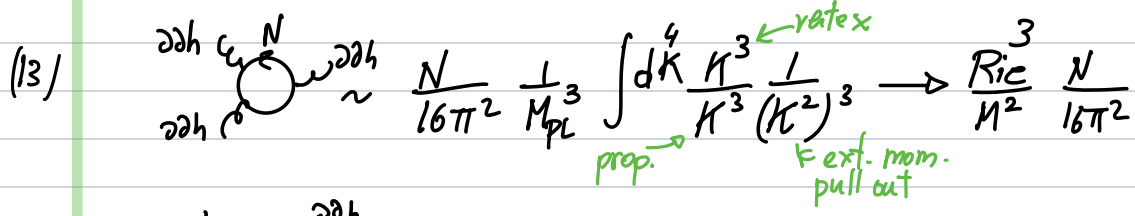 (13) ∂∂h N ∂∂h ∂∂h ~ N/16π² 1/M_PL³ ∫d⁴K K³/K³ 1/(K²)³ → Ric³/M² N/16π²
vertex
prop. ext. mom. pull out
∂∂h